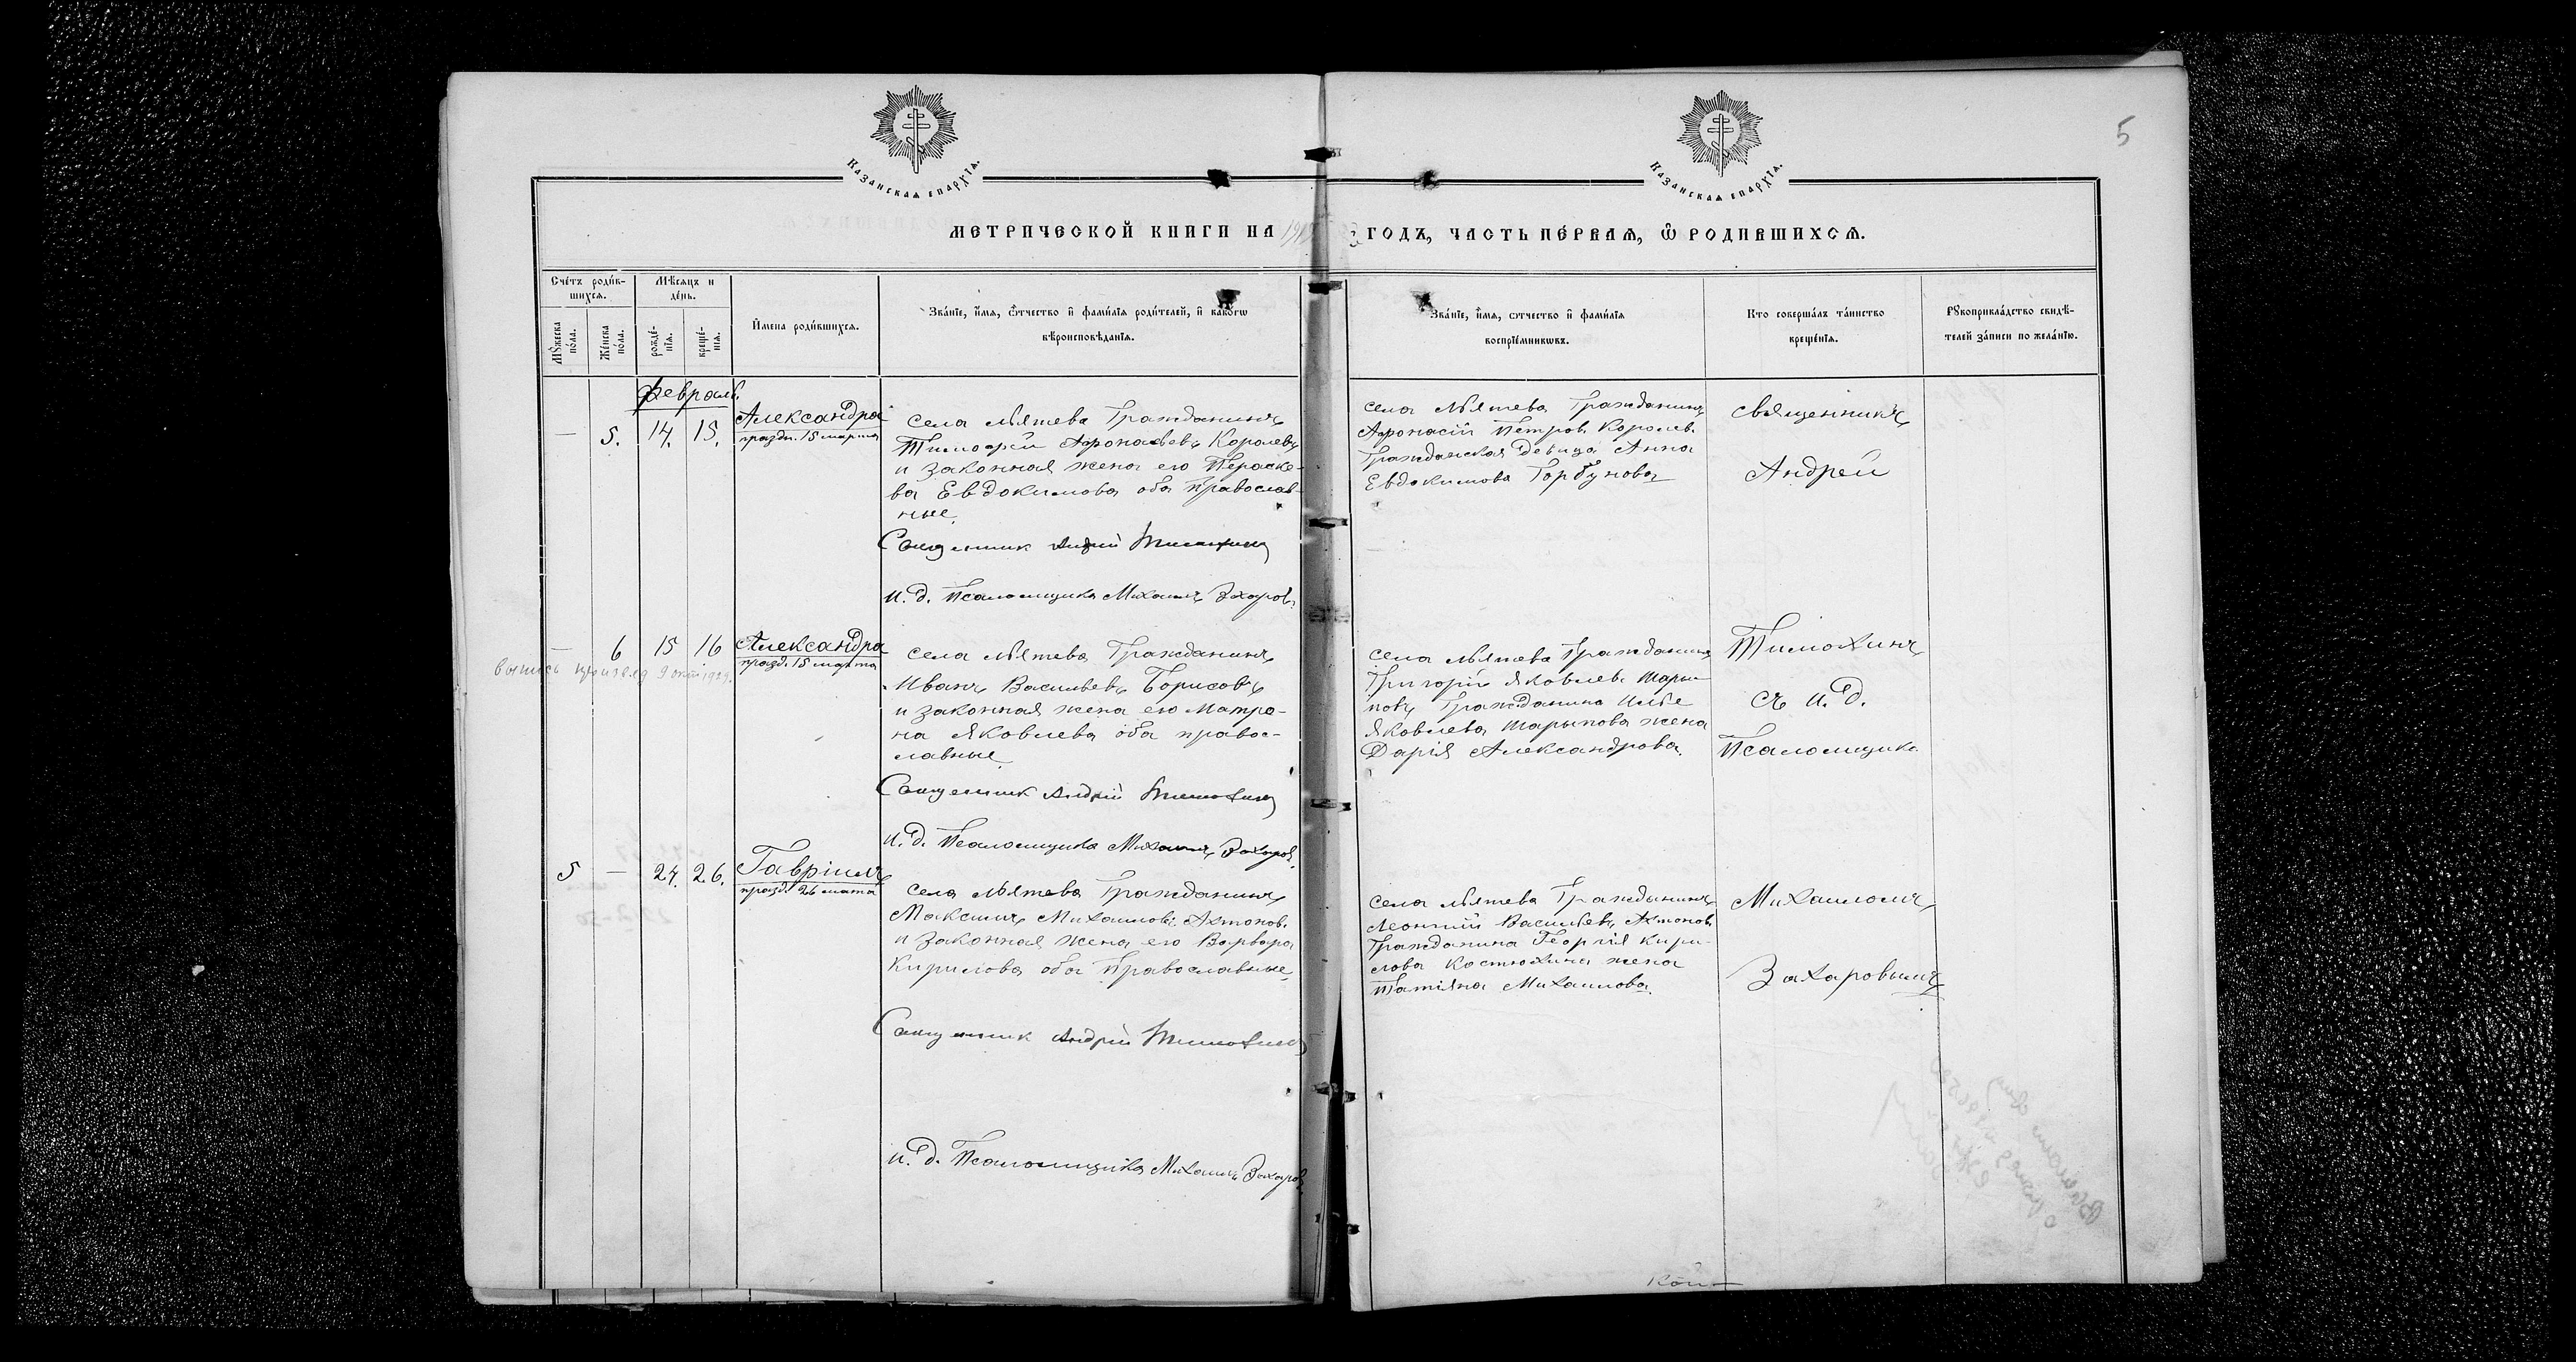 5
Казанская епархїѧ.
Казанская епархїѧ.
МЕТРИЧЕСКОЙ КНИГИ НА
ГОДЪ, ЧАСТЬ ПЕ́РВАѦ, Ѡ РОДИВШИХСѦ.
Сче́тъ роди́в-
шихсѧ.
Мѣ́сѧцъ и
де́нь.
Мꙋ́жеска
по́ла.
Же́нска
по́ла.
рожде́-
нїѧ.
креще́-
нїѧ.
И҆мена роди́вшихсѧ.
Зва́нїе, и҆́мѧ, ѻ҆́тчество и҆ фами́лїѧ роди́телей, и҆ како́гѡ
вѣроисповѣ́данїѧ.
Зва́нїе, и҆́мѧ, ѻ҆́тчество и҆ фами́лїѧ
воспрїе́мникѡвъ.
Кто соверша́лъ та́инство
креще́нїѧ.
Рꙋкоприкла́дство свидѣ́-
телей за́писи по жела́нїю.
февраль.
— 5. 14. 15.
Александра
праздн. 15 марта
села Мѣтева Гражданинъ
Тимофей Афонасьевъ Королевъ
и законная жена его Пераске-
ва Евдокимова оба православ-
ные.
Священник Андрей Тимохинъ
и. д. Псаломщика Михаилъ Захаровъ
села Мѣтева Гражданинъ
Афонасій Петров. Королев.
Гражданская Девица Анна
Евдокимова Горбунова
Священникъ
Андрей
— 6 15 16
Александра
празд. 15 марта
выпись произвед 9 окт 1929.
села Мѣтева Гражданинъ
Иванъ Васильевъ Борисовъ
и законная жена его Матро-
на Яковлева оба правос-
лавные.
Священник Андрей Тимохинъ
и. д. Псаломщика Михаилъ Захаров.
села Мѣтева Гражданинъ
Григорій Яковлевъ Шары-
повъ Гражданина Ильи
Яковлева Шарыпова жена
Дарія Александрова.
Тимохинъ
съ и. д.
Псаломщика
5 — 24. 26.
Гавріилъ
празд. 26 марта
села Мѣтева Гражданинъ
Максимъ Михаиловъ Ахтонов.
и законная жена его Варвара
Кирилова оба Православные
Священник Андрей Тимохинъ
и. д. Псаломщика Михаилъ Захаров
села Мѣтева Гражданинъ
Леонтій Васильевъ Ахтонов
Гражданина Георгія Кири-
лова Костюхина жена
Татіяна Михаилова.
Михаиломъ
Захаровымъ